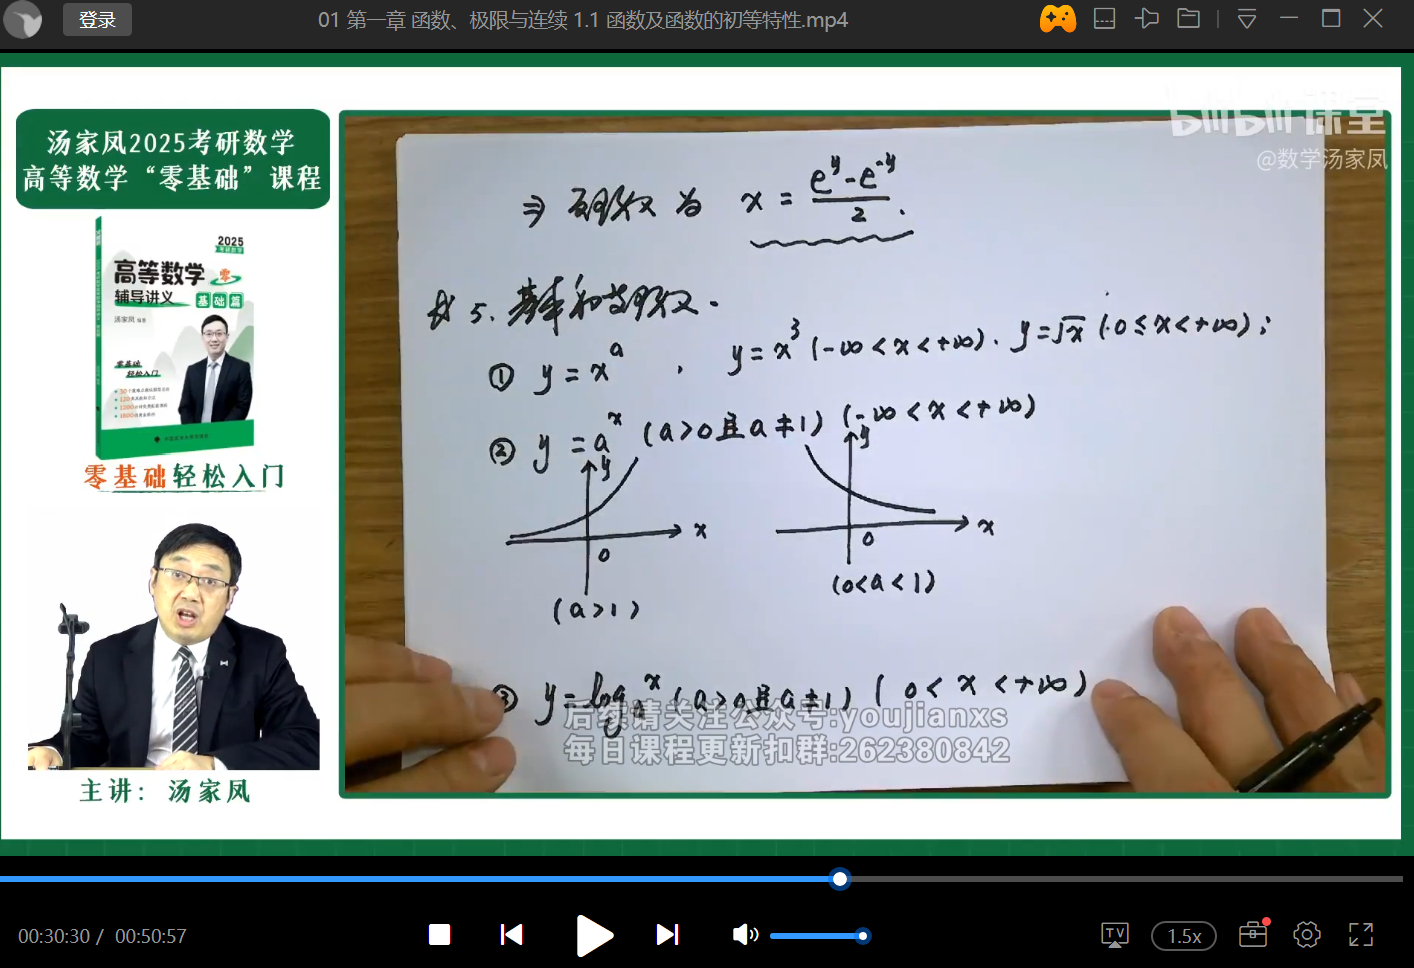 登录
01 第一章 函数、极限与连续 1.1 函数及函数的初等特性.mp4
汤家凤2025考研数学
高等数学“零基础”课程
2025
高等数学 零
辅导讲义 基础篇
汤家凤
零基础
轻松入门
零基础轻松入门
主讲：汤家凤
bilibili课堂
@数学汤家凤
⇒ 反函数为 x = (e^y - e^-y)/2.
5. 基本初等函数.
① y = x^a , y = x³ (-∞ < x < +∞). y = √x (0 ≤ x < +∞);
② y = a^x (a>0且a≠1) (-∞ < x < +∞)
y y
x x
0 0
(a>1) (0<a<1)
③ y = log_a x (a>0且a≠1) (0 < x < +∞)
后续请关注公众号:youjianxs
每日课程更新扣群:262380842
00:30:30 / 00:50:57
TV
1.5x